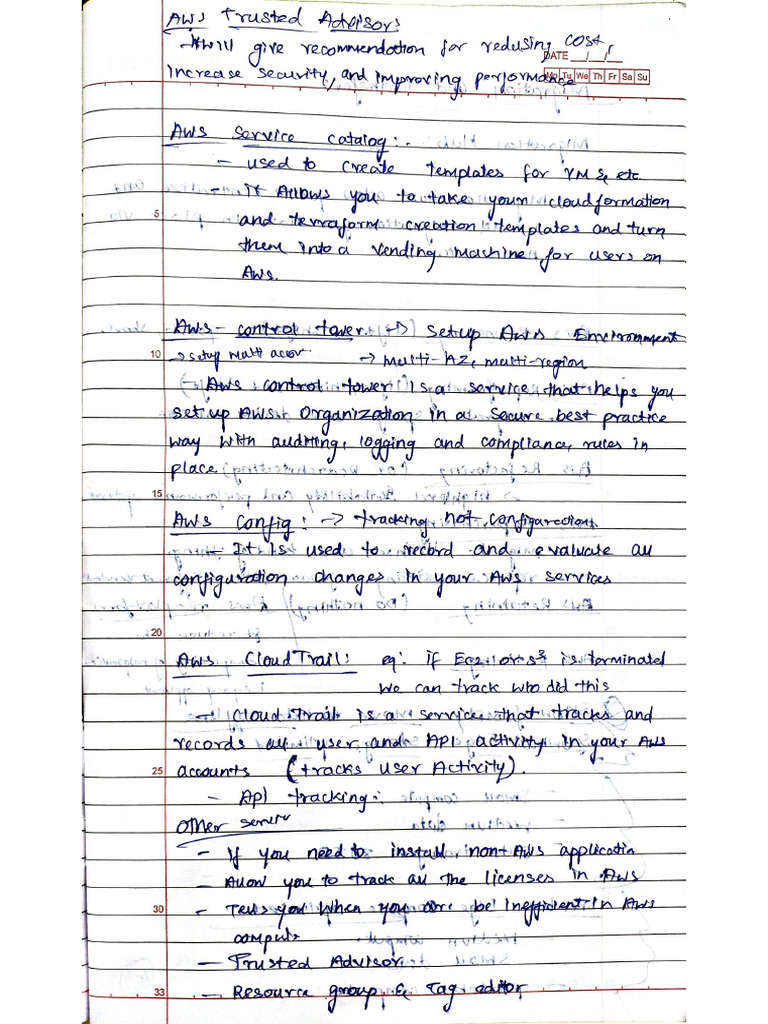 AWS Trusted Advisor:
- AWill give recommendation for redusing cost,
DATE __/__/__
Increase security, and improving performance
Mo Tu We Th Fr Sa Su
AWS Service catalog:-
- used to create templates for VMs etc
- it Allows you to take your cloudformation
5
and terraform creation templates and turn
them into a vending machine for users on
AWS.
AWS - control tower. -> setup AWS Environment
10
-> setup multi accou -> multi-AZ, multi-region
- AWS control tower is a service that helps you
set up AWS Organization in a secure best practice
way with auditing, logging and compliance, rules in
place
15
AWS Config: -> tracking not configurections
- It is used to record and evaluate all
configuration changes in your AWS services
20
AWS CloudTrail: eg: if Ec2 or S3 is terminated
we can track who did this
- Cloud Trail is a service that tracks and
records all user and API activity in your AWS
25
accounts (tracks user Activity).
- API tracking:
Other service
- If you need to install non AWS applicatio
- Allow you to track all the licenses in AWS
30
- Tells you when you are be inefficient in AWS
compute
- Trusted Advisor
33
- Resource group & Tag editor